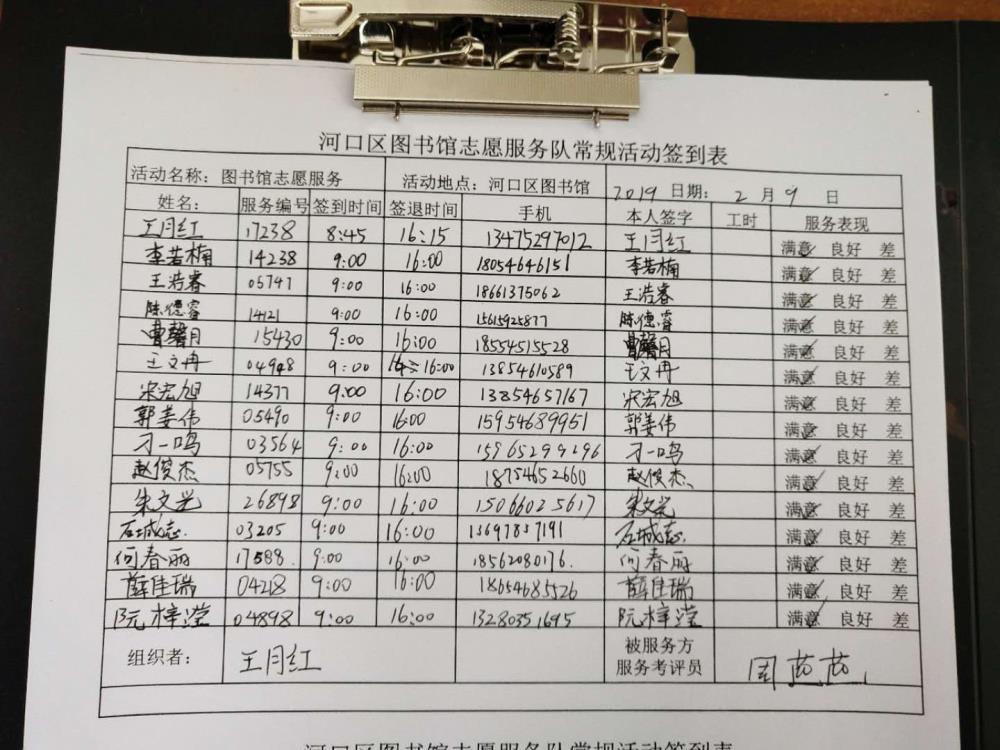 河口区图书馆志愿服务队常规活动签到表
活动名称：图书馆志愿服务 活动地点：河口区图书馆 2019 日期： 2 月 9 日
姓名： 服务编号 签到时间 签退时间 手机 本人签字 工时 服务表现
王月红 17238 8:45 16:15 13475297012 王月红 满意 良好 差
李若楠 14238 9:00 16:00 18054646151 李若楠 满意 良好 差
王浩睿 05797 9:00 16:00 18661375062 王浩睿 满意 良好 差
陈德睿 14121 9:00 16:00 15615925877 陈德睿 满意 良好 差
曹馨月 15430 9:00 16:00 18554515528 曹馨月 满意 良好 差
王文冉 04948 9:00 16:00 13854610589 王文冉 满意 良好 差
宋宏旭 14377 9:00 16:00 13854657167 宋宏旭 满意 良好 差
郭姜伟 05490 9:00 16:00 15954689951 郭姜伟 满意 良好 差
刁一鸣 03564 9:00 16:00 15965299296 刁一鸣 满意 良好 差
赵俊杰 05755 9:00 16:00 18754652660 赵俊杰 满意 良好 差
朱文光 26898 9:00 16:00 15066025617 朱文光 满意 良好 差
石城志. 03205 9:00 16:00 13697857191 石城志. 满意 良好 差
何春丽 17588. 9:00 16:00 18562080176. 何春丽 满意 良好 差
薛佳瑞 04218 9:00 16:00 18654685526 薛佳瑞 满意 良好 差
阮梓滢 04898 9:00 16:00 13280351695 阮梓滢 满意 良好 差
组织者： 王月红 被服务方
服务考评员 周茜茜
河口区图书馆志愿服务队常规活动签到表